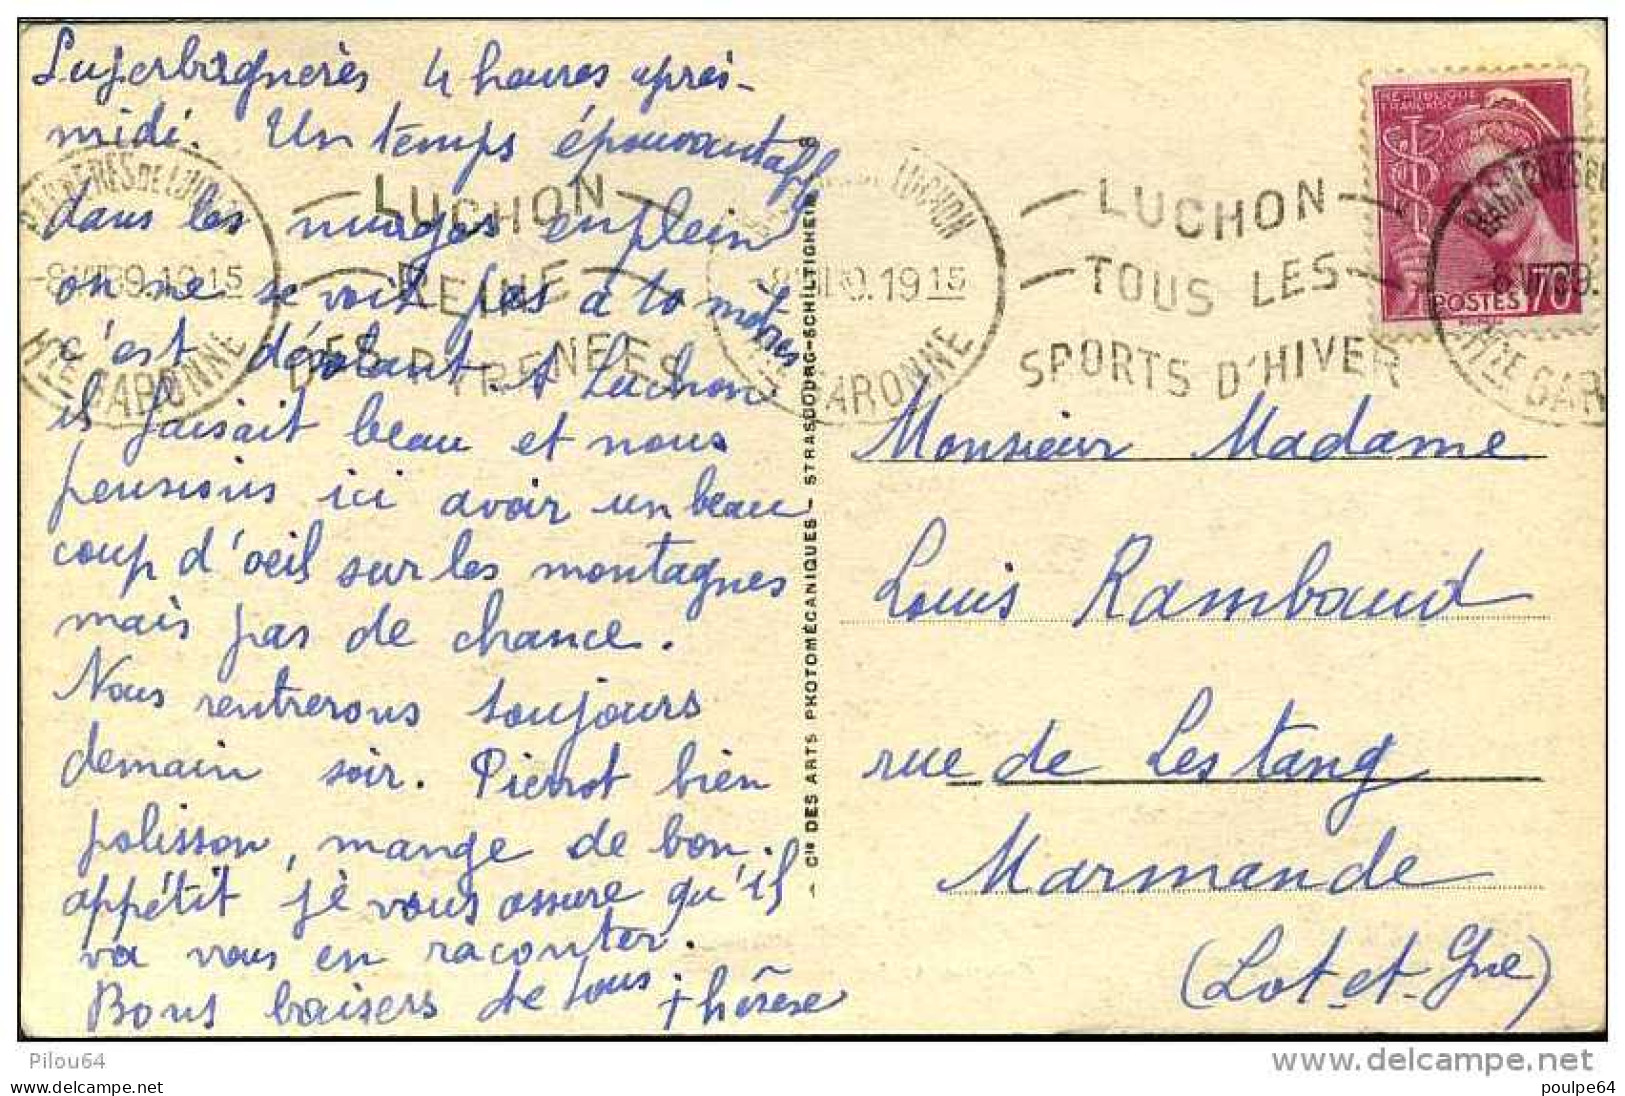 Superbagnerès 4 heures après-
midi. Un temps épouvantable
dans les nuages en plein
on ne se voit pas à 10 mètres
c'est désolant. A Luchon
il faisait beau et nous
pensions ici avoir un beau
coup d'oeil sur les montagnes
mais pas de chance.
Nous rentrerons toujours
demain soir. Pierrot bien
polisson, mange de bon.
appétit je vous assure qu'il
va vous en raconter.
Bons baisers de tous Thérèse
BAGNERES DE LUCHON
-8 VII 39. 19 15
HTE GARONNE
LUCHON
REINE
DES PYRENEES
DE LUCHON
-8 VII 39. 19 15
HTE GARONNE
LUCHON
TOUS LES
SPORTS D'HIVER
BAGNERES DE
-8 VII 39.
HTE GAR
REPUBLIQUE
FRANÇAISE
POSTES 70c
- Cie DES ARTS PHOTOMÉCANIQUES - STRASBOURG-SCHILTIGHEIM
Monsieur Madame
Louis Rambaud
rue de Lestang
Marmande
(Lot-et-Gne)
Pilou64
www.delcampe.net
poulpe64